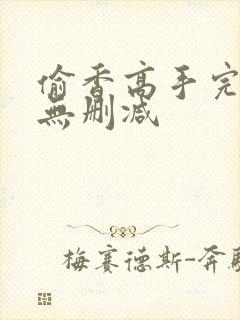 偷香高手完
無刪減
梅賽德斯-奔馳